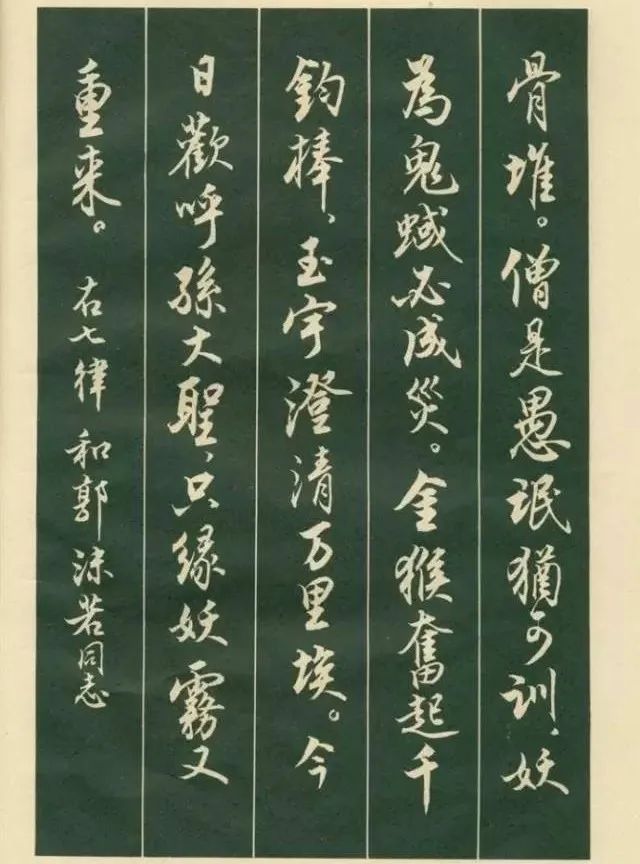 骨堆。僧是愚氓猶可训，妖
為鬼蜮必成災。金猴奮起千
鈞棒，玉宇澄清万里埃。今
日歡呼孫大聖，只緣妖霧又
重来。右七律和郭沫若同志